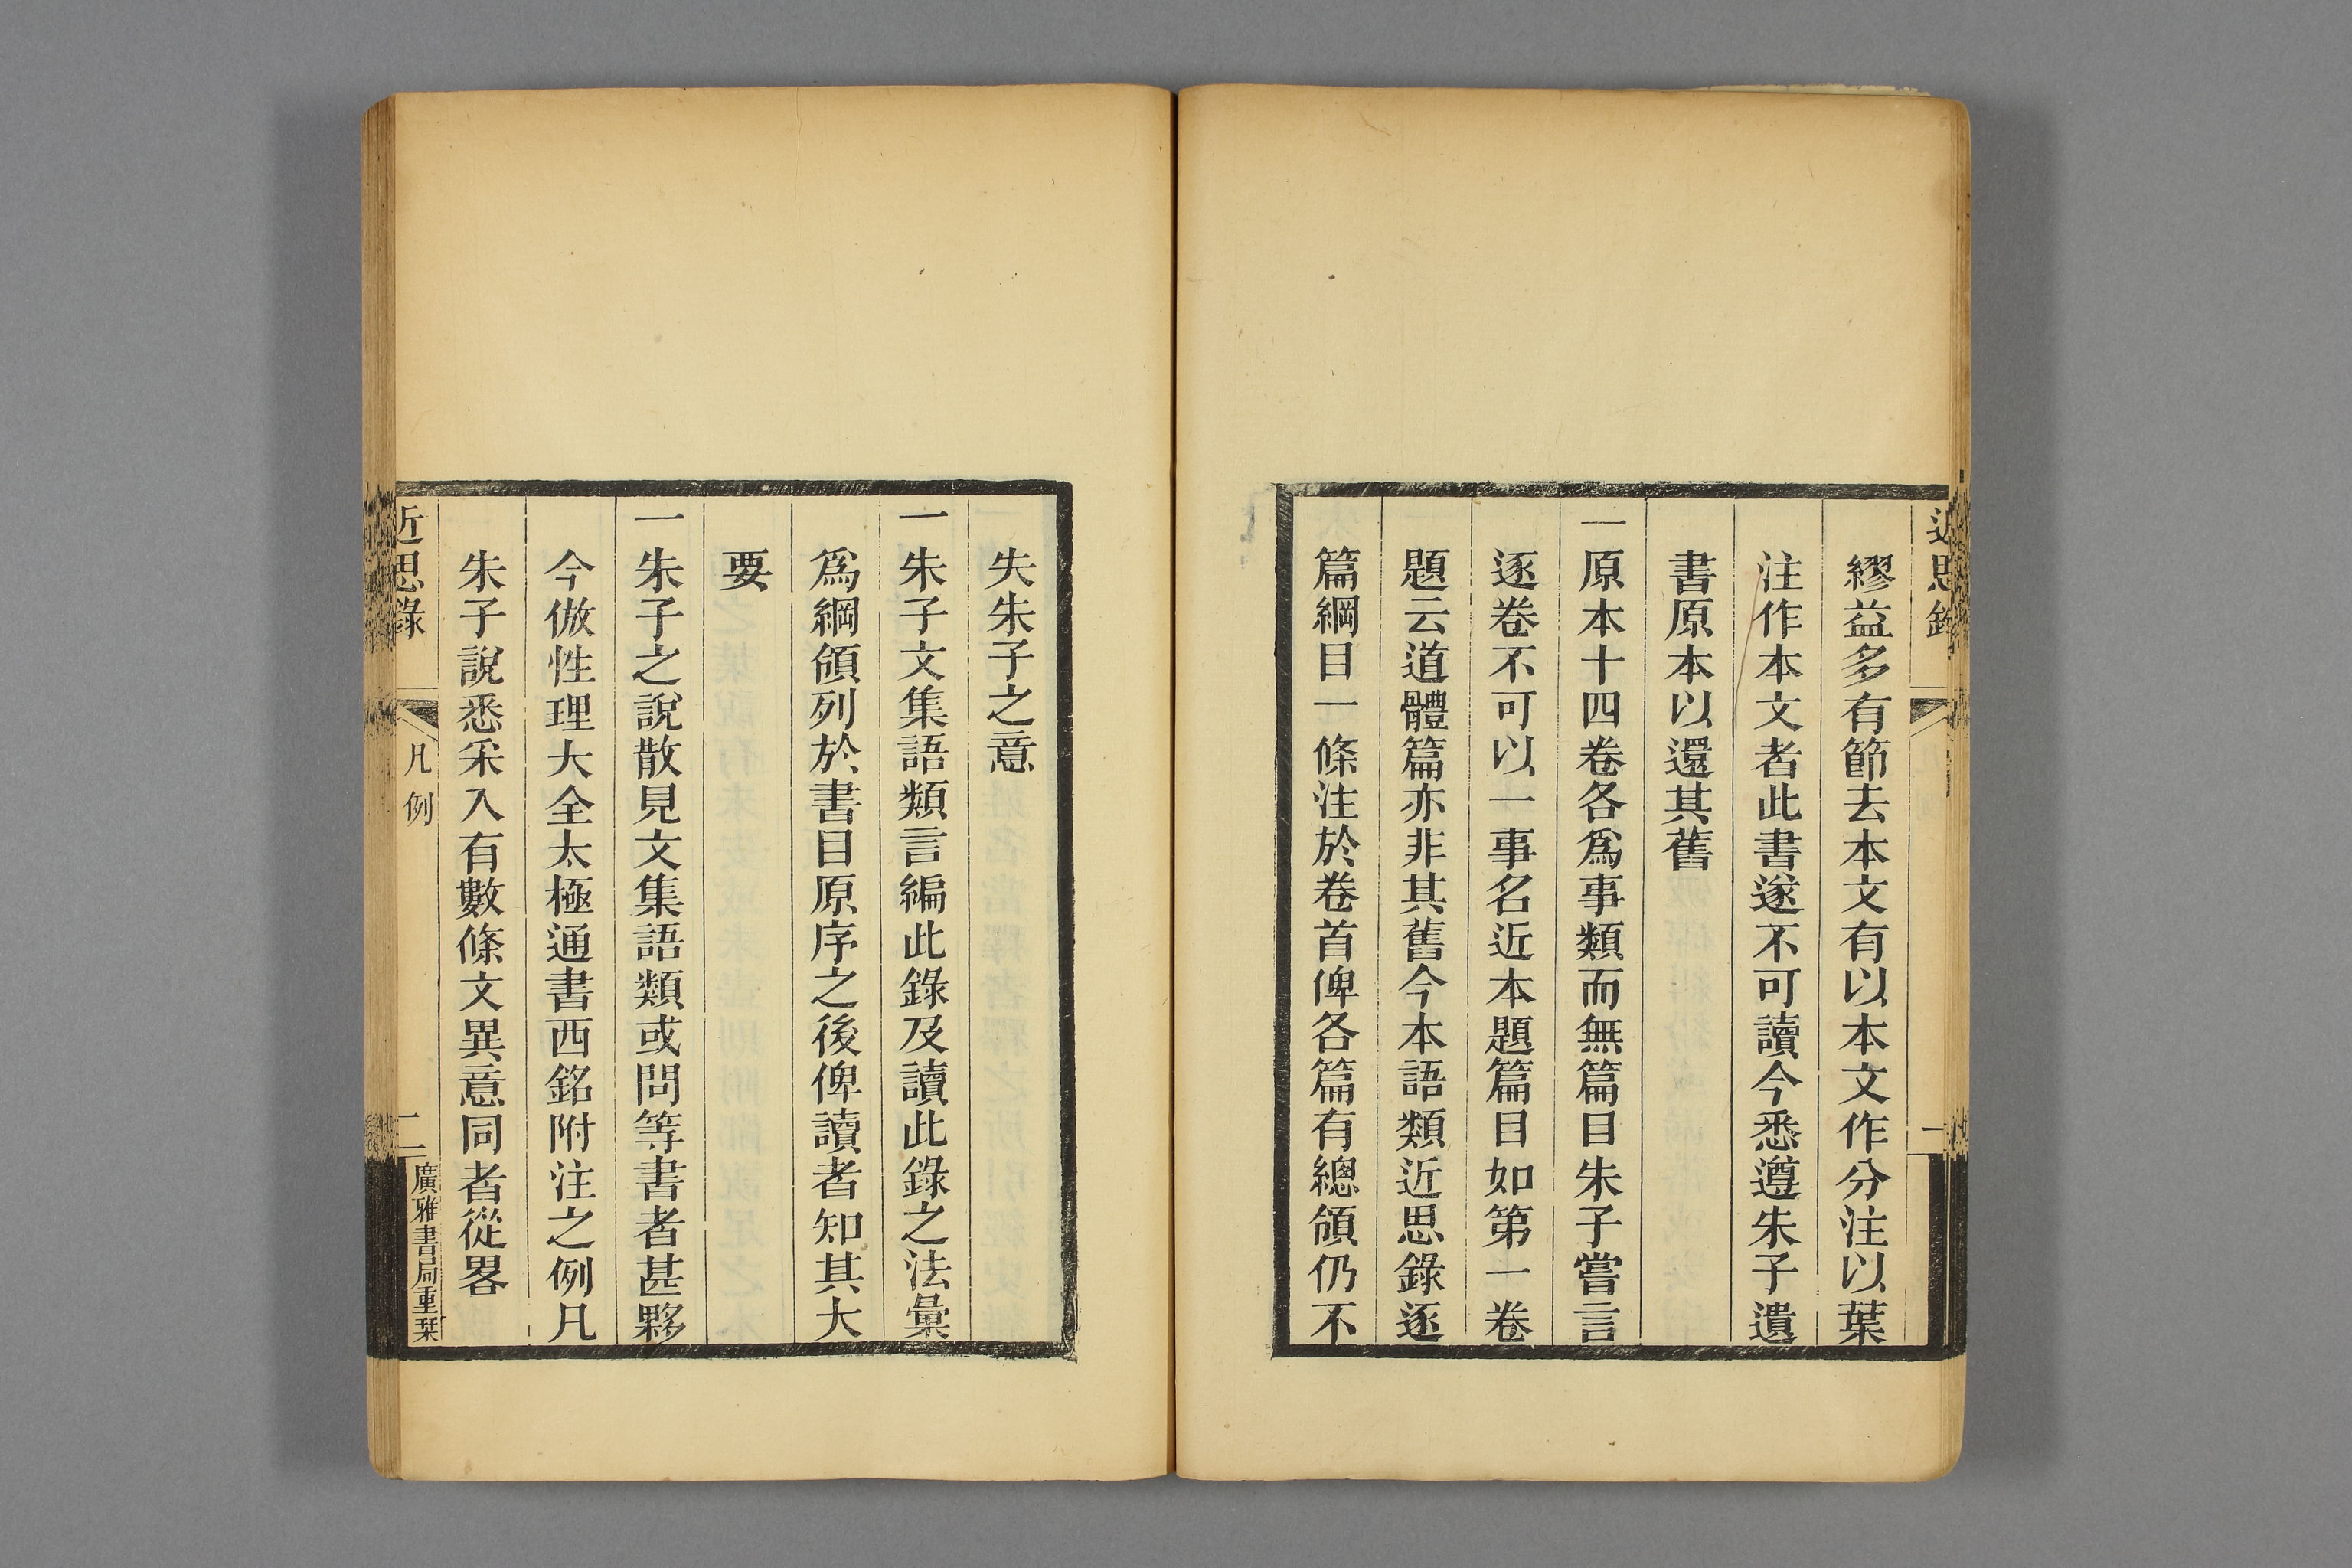 繆益多有節去本文有以本文作分注以葉
注作本文者此書遂不可讀今悉遵朱子遺
書原本以還其舊
一原本十四卷各爲事類而無篇目朱子嘗言
逐卷不可以一事名近本題篇目如第一卷
題云道體篇亦非其舊今本語類近思錄逐
篇綱目一條注於卷首俾各篇有總領仍不
失朱子之意
一朱子文集語類言編此錄及讀此錄之法彙
爲綱領列於書目原序之後俾讀者知其大
要
一朱子之說散見文集語類或問等書者甚夥
今倣性理大全太極通書西銘附注之例凡
朱子說悉采入有數條文異意同者從畧
近思錄
凡例
二
廣雅書局重栞